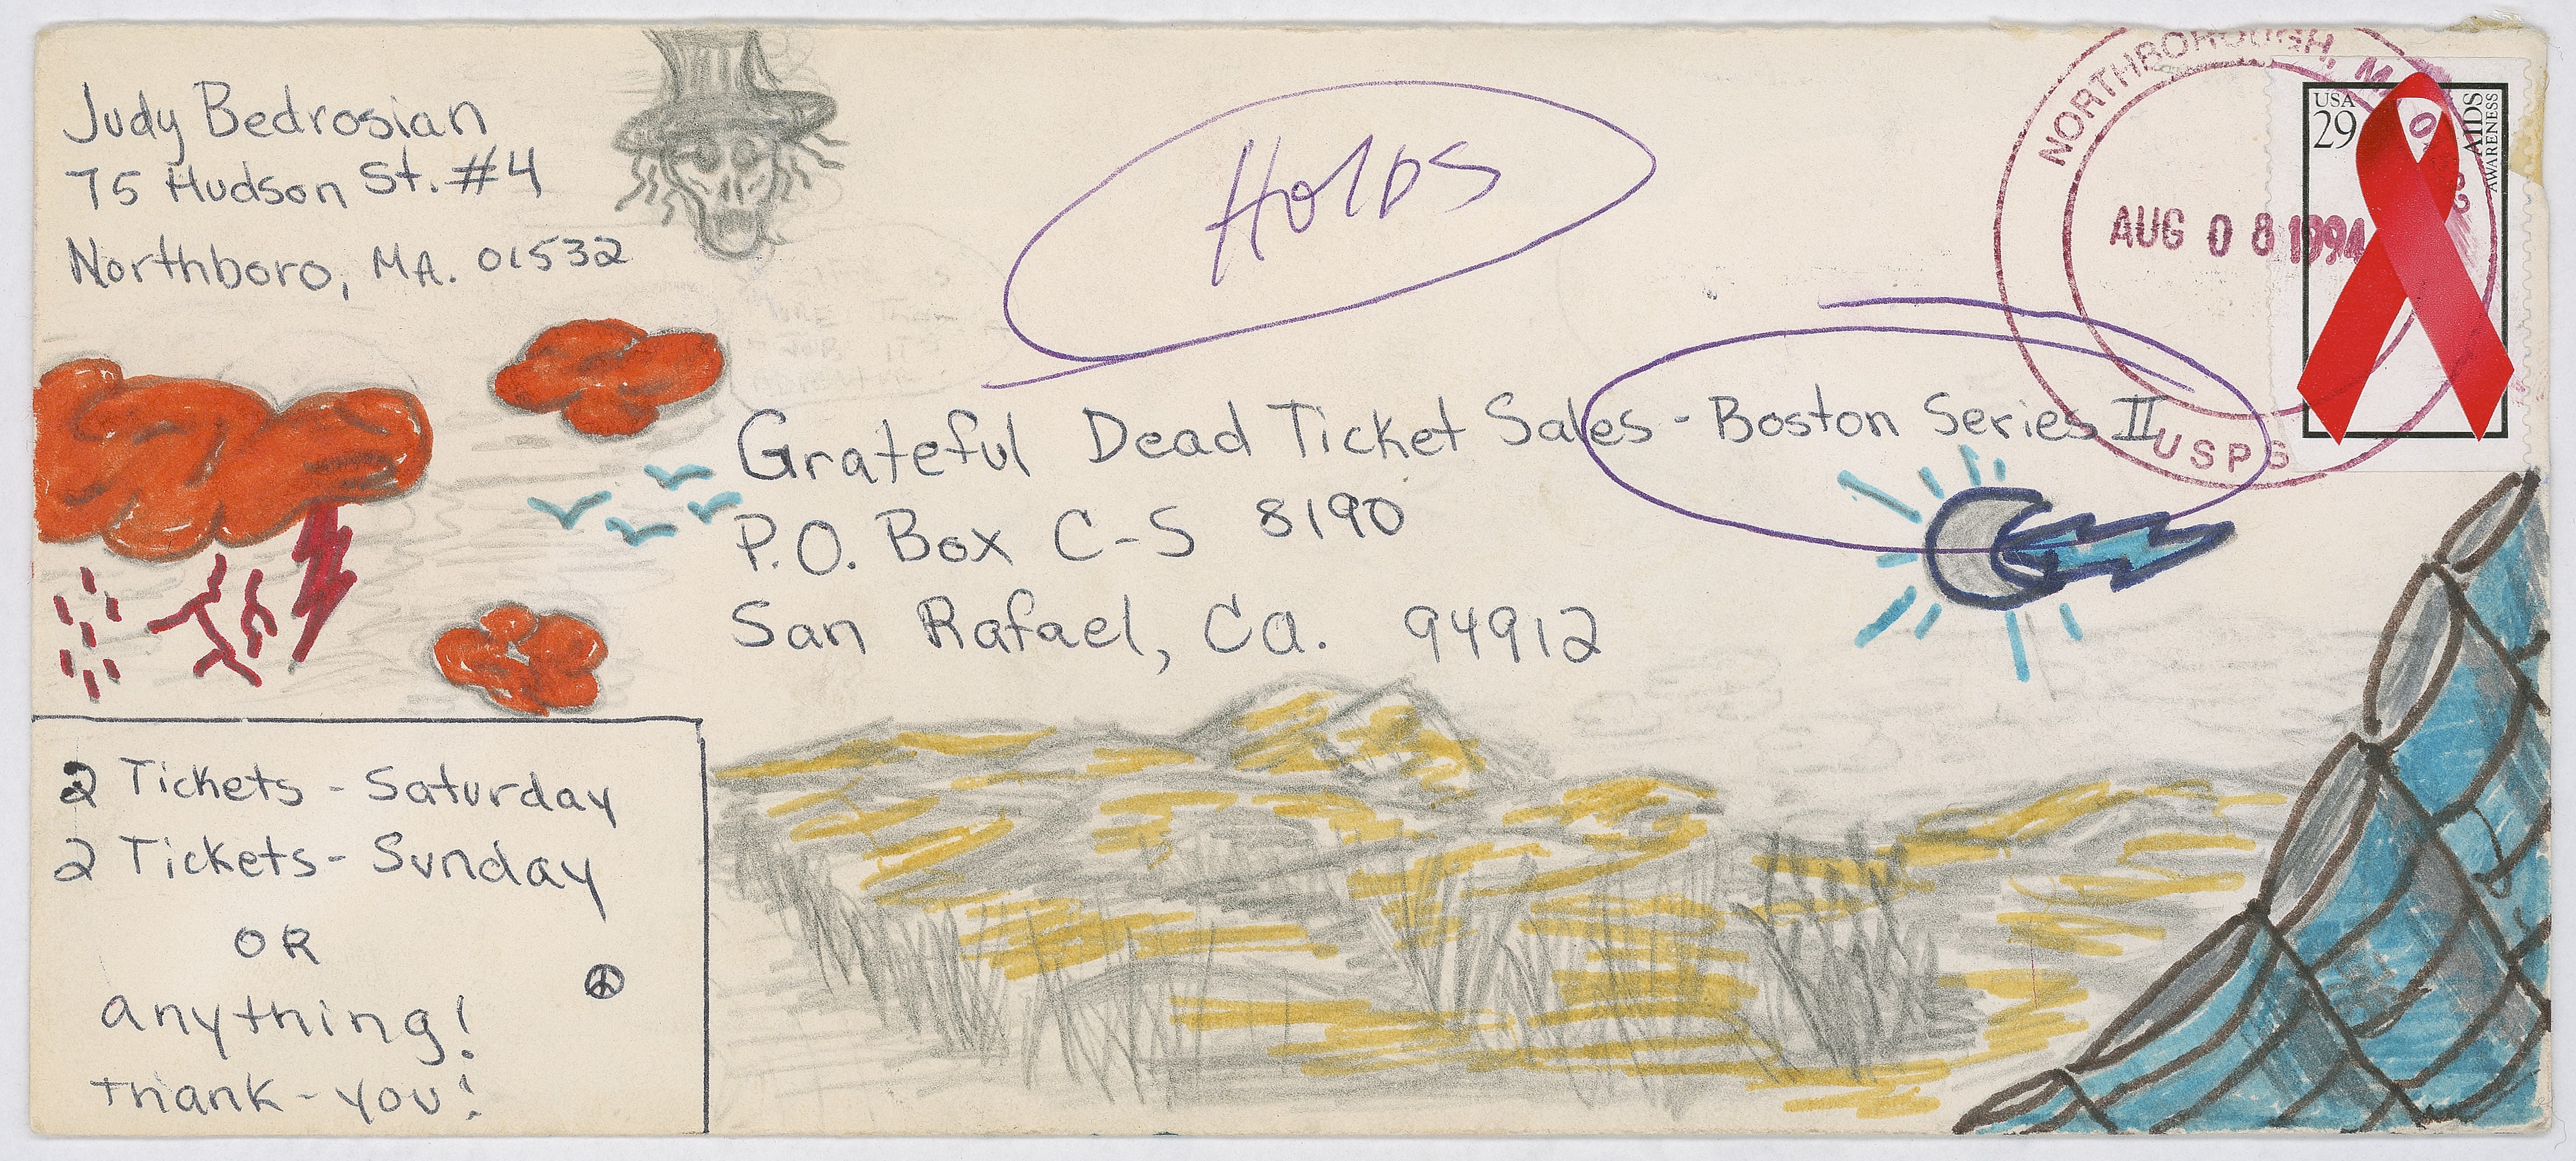 Judy Bedrosian
75 Hudson St. #4
Northboro, MA. 01532
Holds
NORTHBOROUGH, M
AUG 08 1994
USPS
USA
29
AIDS
AWARENESS
Grateful Dead Ticket Sales - Boston Series II
P.O. Box C-S 8190
San Rafael, Ca. 94912
2 Tickets - Saturday
2 Tickets - Sunday
OR
anything!
thank-you!